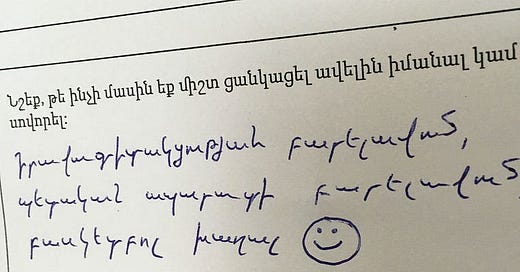 Նշեք, թե ինչի մասին եք միշտ ցանկացել ավելին իմանալ կամ
սովորել:
Իրավագիտակցության բարելավում,
պետական ապարատի բարելավում
բասկետբոլ խաղալ